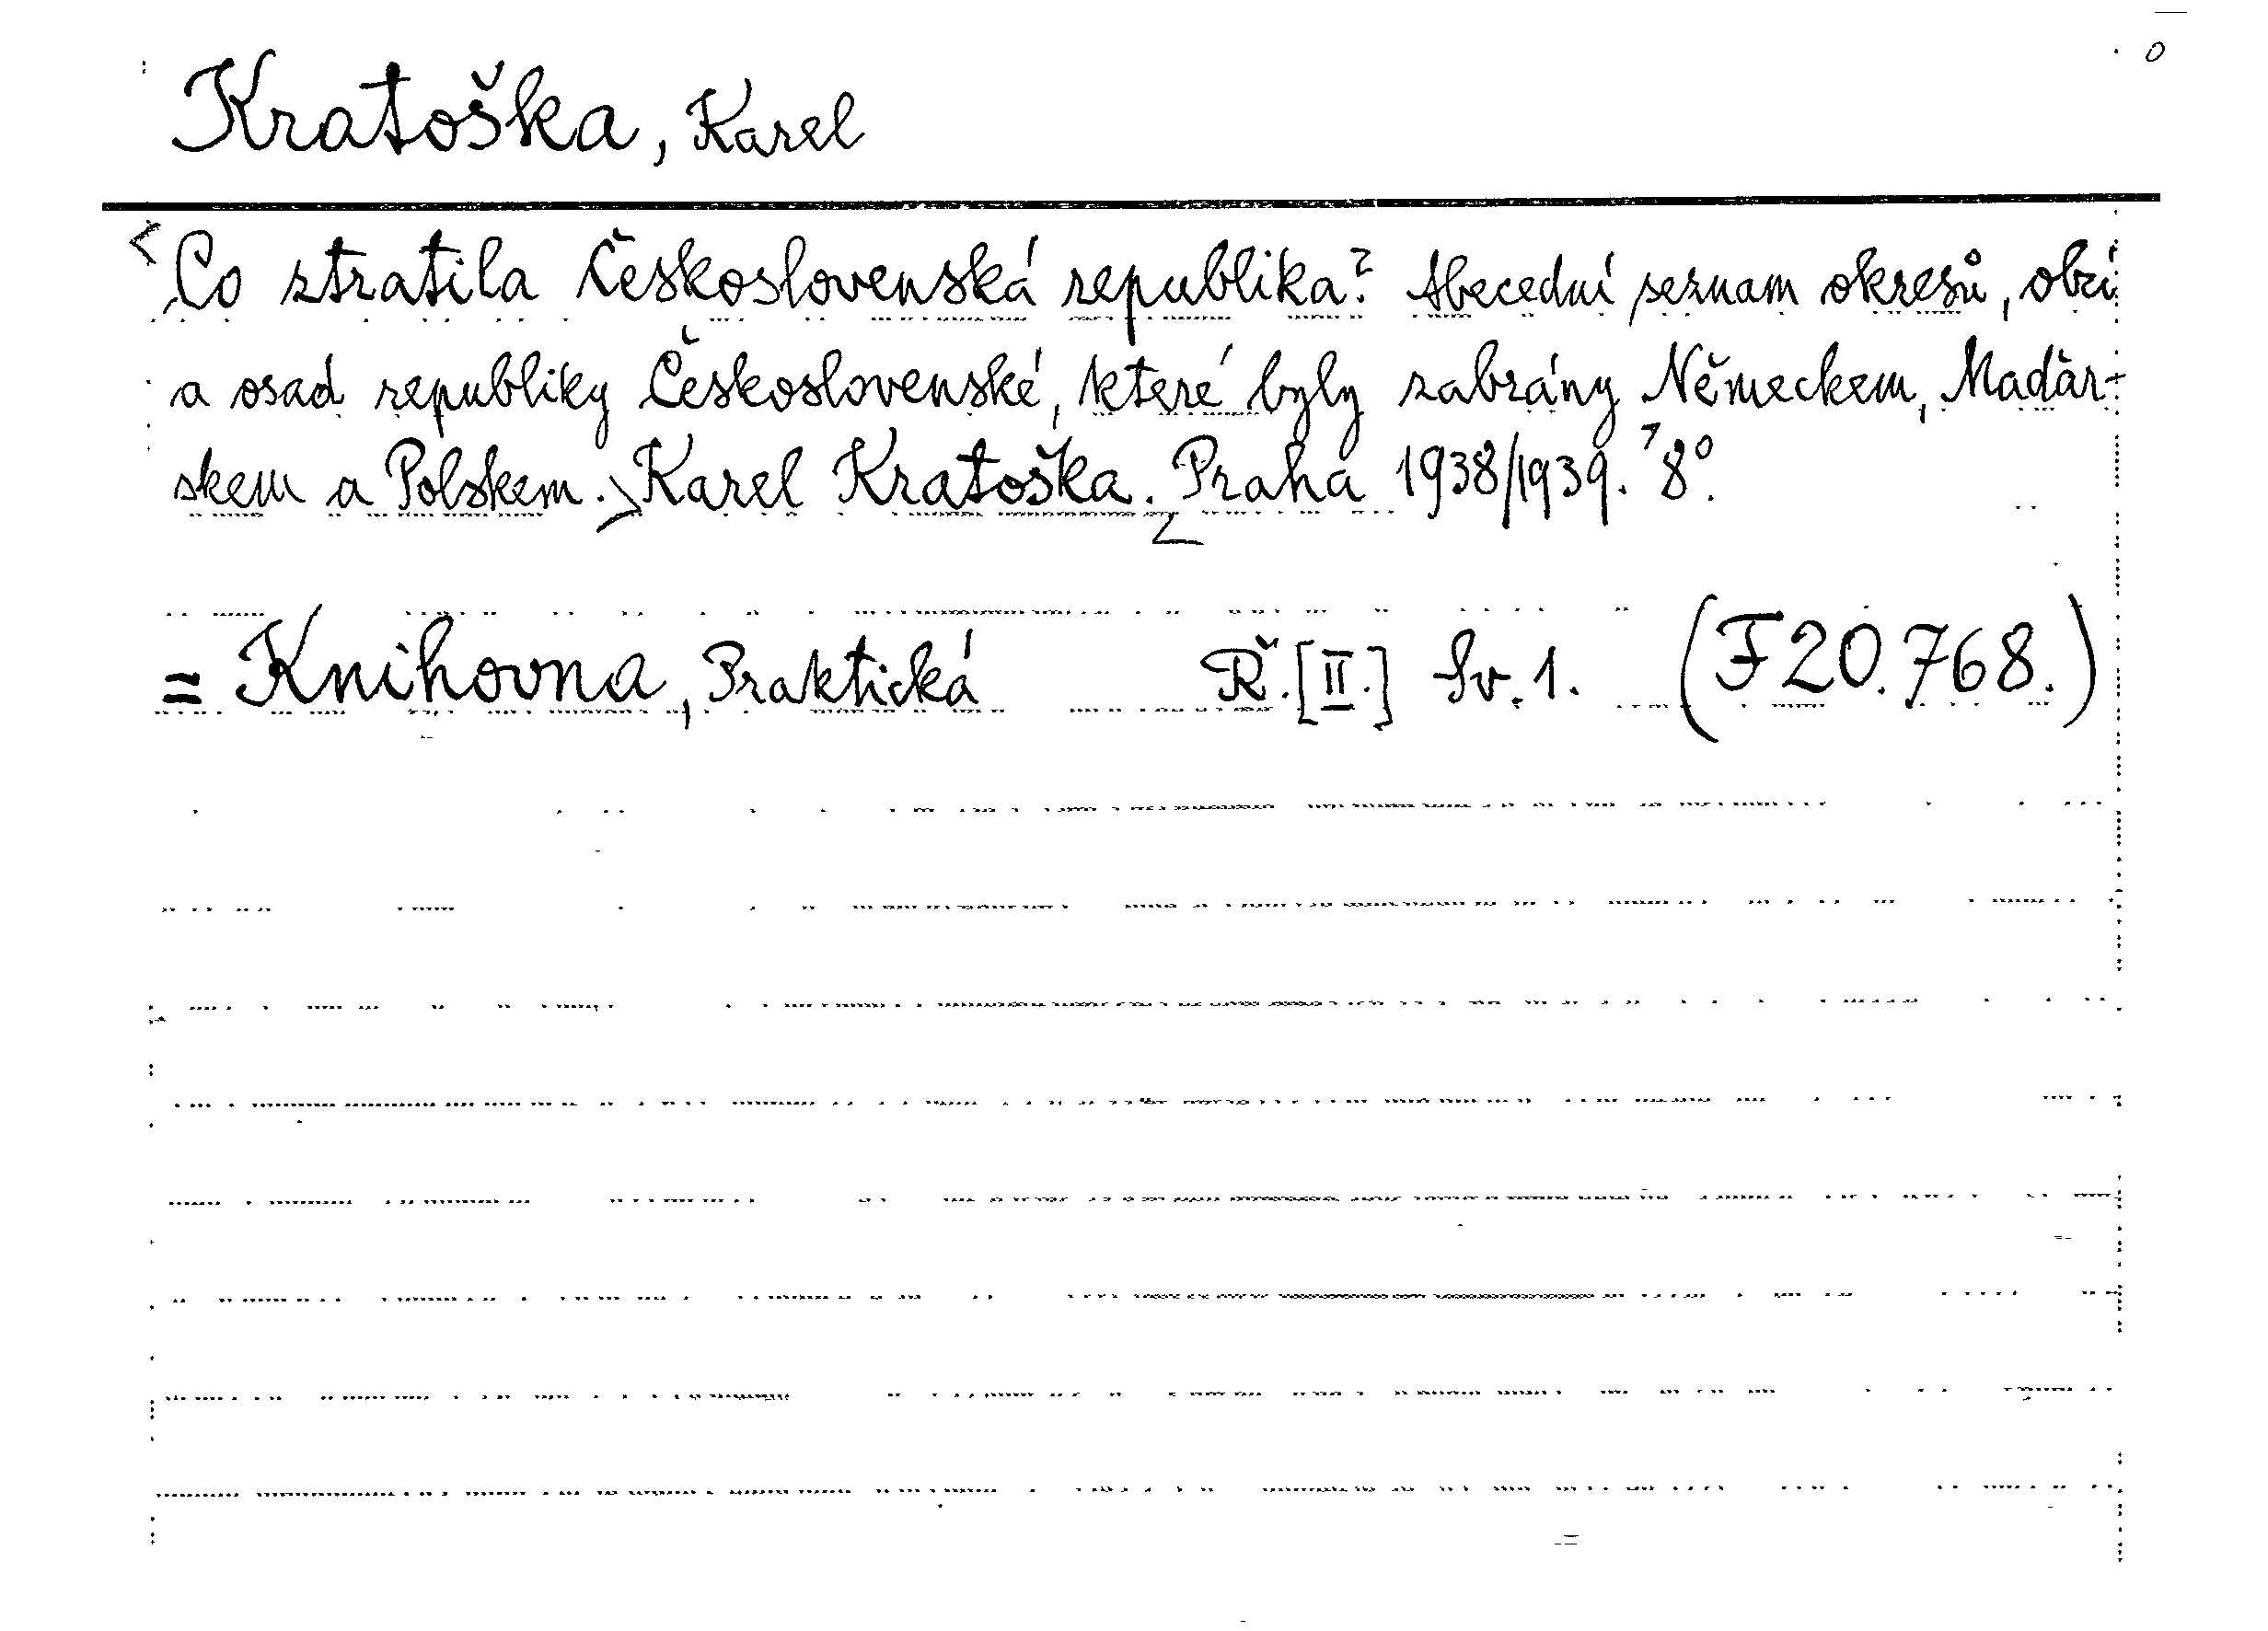 Kratoška, Karel
<Co ztratila Československá republika? Abecední seznam okresů, obcí
a osad republiky Československé, které byly zabrány Německem, Maďar-
skem a Polskem.> Karel Kratoška. Praha 1938/1939. 8°.
= Knihovna, Praktická Ř. [II.] Sv. 1. (F 20.768.)